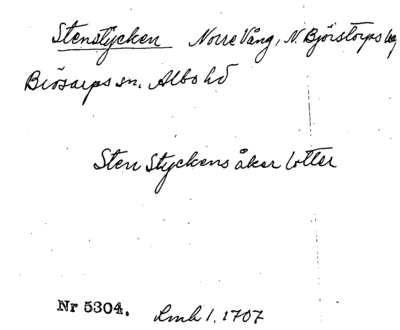 Stenstycken Norre Vång, N. Björstorps by
Brösarps sn. Albo hd
Sten Styckens åker Lotter
Nr 5304. Lmh 1. 1707